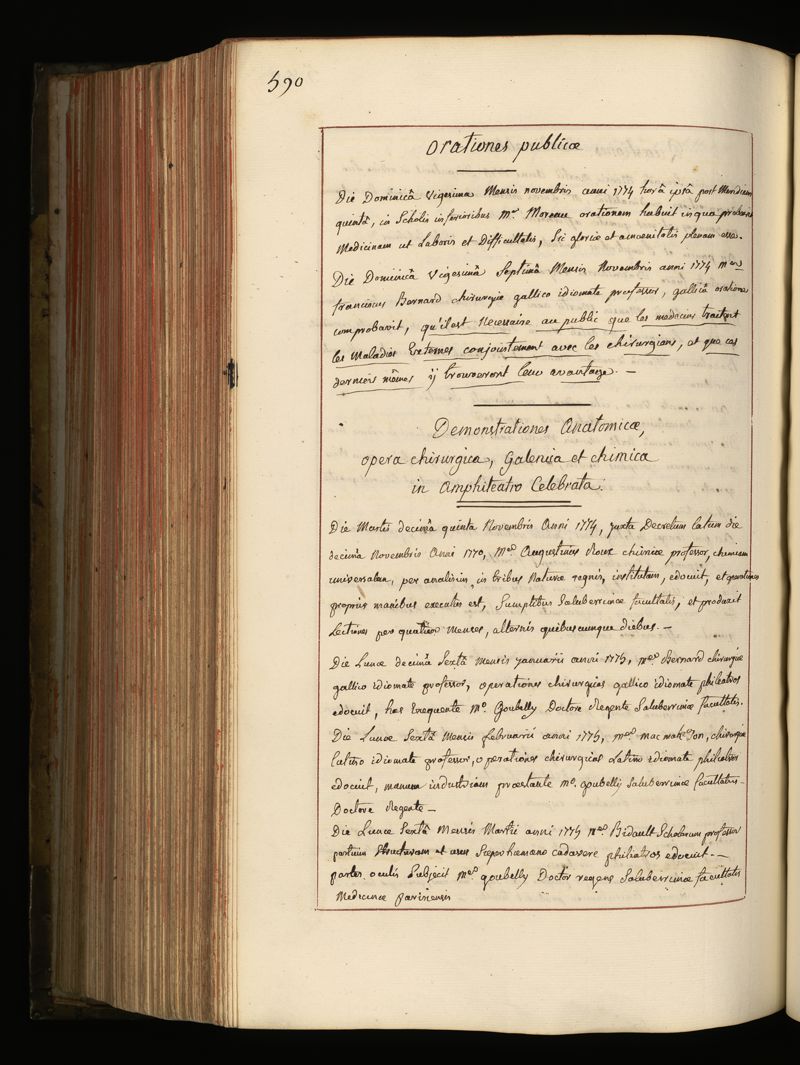 590
Orationes publicæ
Die Dominicâ Vigesima Mensis novembris anni 1774 horâ ipsâ post Meridiem
quintâ, in Scholis inferioribus Mr. Moreau orationem habuit in qua probavit
Medicinam ut Laboris et Difficultatis, Sic gloriæ et amœnitatis plenam esse.
Die Dominicâ Vigesimâ Septimâ Mensis Novembris anni 1774 Mer
franciscus Bernard chirurgiæ gallico idiomate professor, gallicâ oratione
comprobavit, qu'il est Necessaire au public que les medecins traitent
les Maladies Externes conjointement avec les chirurgiens, et que ces
derniers mêmes y trouveront leur avantage. —
Demonstrationes Anatomicæ,
opera chirurgica, Galenica et chimica
in Amphiteatro Celebrata.
Die Martis decimâ quinta Novembris Anni 1774, juxta Decretum latum die
decimâ Novembris Anni 1770, Mer Augustinus Roux chimiæ professor, chimiam
universalem, per analisim, in tribus Naturæ regnis, institutam, edocuit, et
propriis manibus executus est, Sumptibus Saluberrimæ facultatis, et produxit
Lectiones per quatuor menses, alternis quibuscumque diebus. —
Die Lunæ decimâ Sextâ Mensis januarii anni 1775, Mer Bernard chirurgiæ
gallico idiomate professor, operationes chirurgicas gallico idiomate philiatros
edocuit, has Exequente Mo. Goubelly Doctore Regente Saluberrimæ facultatis.
Die Lunæ Sextâ Mensis februarii anni 1775, Mer Mac mahon, chirurgiæ
latino idiomate professor, operationes chirurgicas Latino idiomate philiatros
edocuit, manum industriam præstante Mo. Goubelly Saluberrimæ facultatis
Doctore Regente —
Die Lunæ Sextâ Mensis Martii anni 1775 Mer Bidault Scholarum professor
partium Structuram et usus Super humano cadavere philiatros edocuit. —
partes oculis Subjecit Mer Goubelly Doctor regens Saluberrimæ facultatis
Medicinæ parisiensis